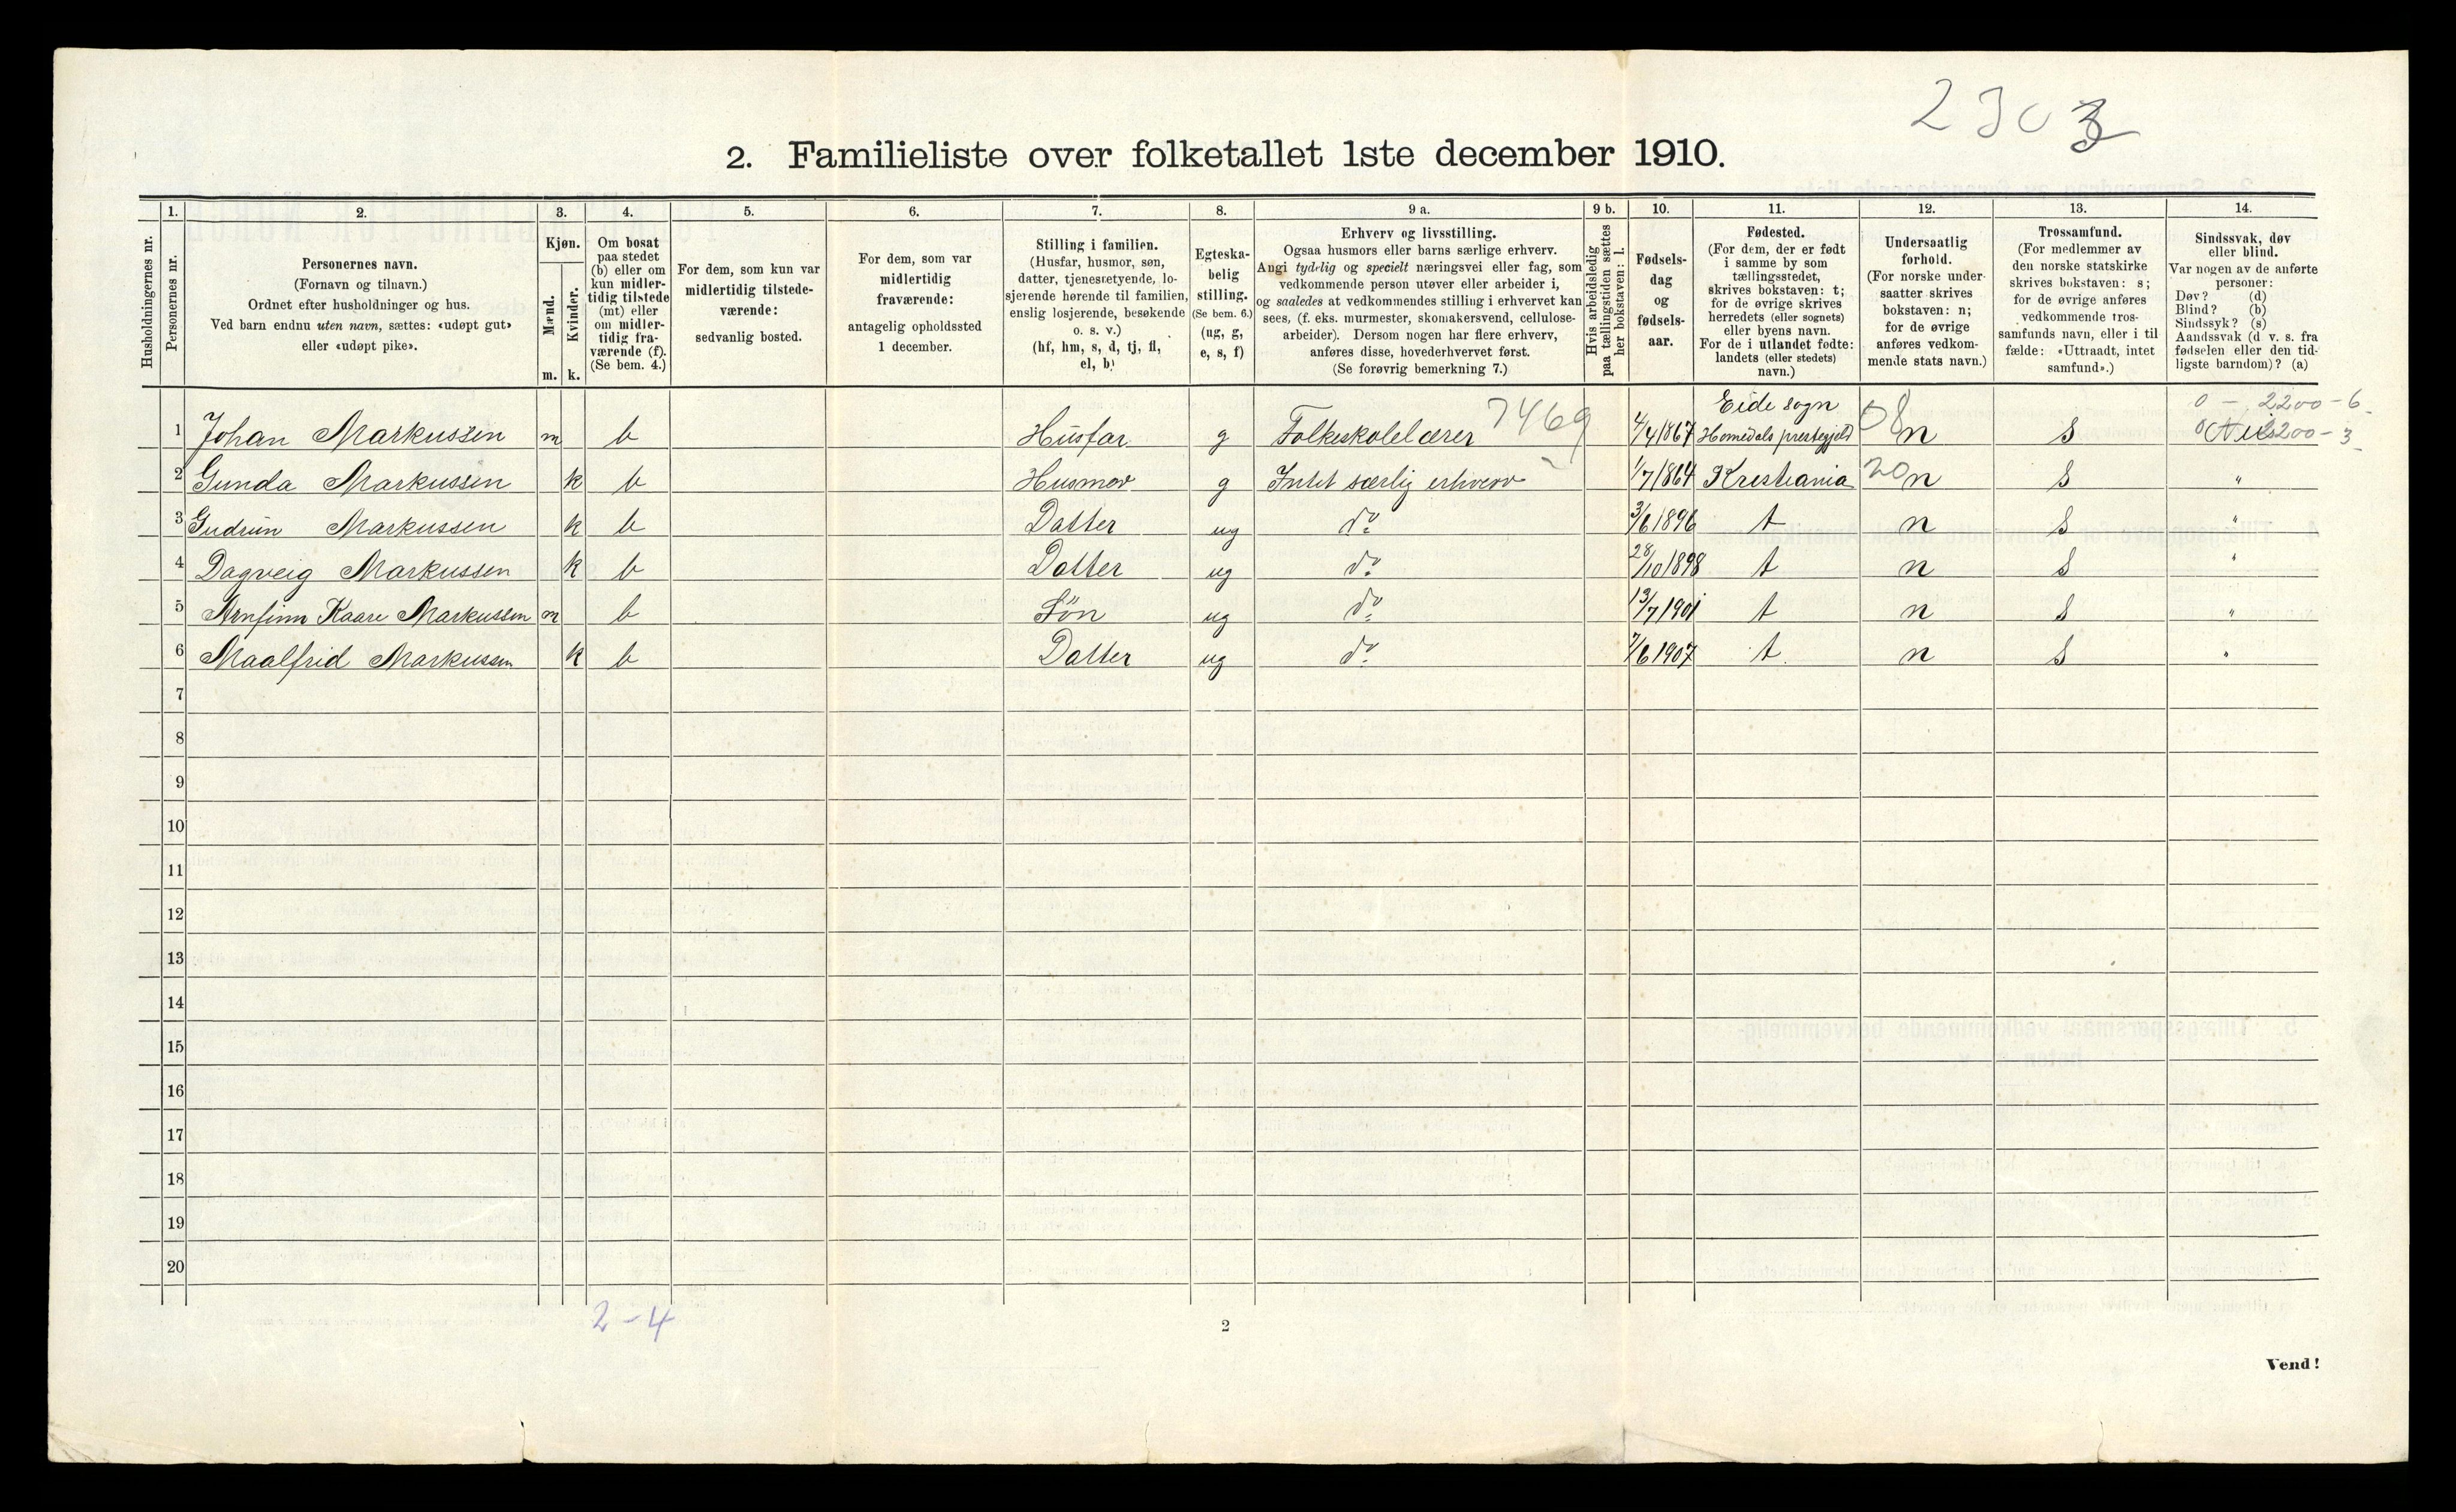 2303
2. Familieliste over folketallet 1ste december 1910.
Husholdningernes nr.
1.
Personernes nr.
2.
Personernes navn.
(Fornavn og tilnavn.)
Ordnet efter husholdninger og hus.
Ved barn endnu uten navn, sættes: «udøpt gut»
eller «udøpt pike».
3.
Kjøn.
Mænd.
Kvinder.
m. k.
4.
Om bosat
paa stedet
(b) eller om
kun midler-
tidig tilstede
(mt) eller
om midler-
tidig fra-
værende (f).
(Se bem. 4.)
5.
For dem, som kun var
midlertidig tilstede-
værende:
sedvanlig bosted.
6.
For dem, som var
midlertidig
fraværende:
antagelig opholdssted
1 december.
7.
Stilling i familien.
(Husfar, husmor, søn,
datter, tjenestetyende, lo-
sjerende hørende til familien,
enslig losjerende, besøkende
o. s. v.)
(hf, hm, s, d, tj, fl,
el, b)
8.
Egteska-
belig
stilling.
(Se bem. 6.)
(ug, g,
e, s, f)
9 a.
Erhverv og livsstilling.
Ogsaa husmors eller barns særlige erhverv.
Angi tydelig og specielt næringsvei eller fag, som
vedkommende person utøver eller arbeider i,
og saaledes at vedkommendes stilling i erhvervet kan
sees, (f. eks. murmester, skomakersvend, cellulose-
arbeider). Dersom nogen har flere erhverv,
anføres disse, hovederhvervet først.
(Se forøvrig bemerkning 7.)
9 b.
Hvis arbeidsledig
paa tællingstiden sættes
her bokstaven: l.
10.
Fødsels-
dag
og
fødsels-
aar.
11.
Fødested.
(For dem, der er født
i samme by som
tællingsstedet,
skrives bokstaven: t;
for de øvrige skrives
herredets (eller sognets)
eller byens navn.
For de i utlandet fødte:
landets (eller stedets)
navn.)
12.
Undersaatlig
forhold.
(For norske under-
saatter skrives
bokstaven: n;
for de øvrige
anføres vedkom-
mende stats navn.)
13.
Trossamfund.
(For medlemmer av
den norske statskirke
skrives bokstaven: s;
for de øvrige anføres
vedkommende tros-
samfunds navn, eller i til
fælde: «Uttraadt, intet
samfund».)
14.
Sindssvak, døv
eller blind.
Var nogen av de anførte
personer:
Døv? (d)
Blind? (b)
Sindssyk? (s)
Aandssvak (d v. s. fra
fødselen eller den tid-
ligste barndom)? (a)
Eide sogn 0 - 2200 - 6
1 Johan Markussen m b Husfar g Folkeskolelærer 7469 4/4 1867 Homedals prestegjeld 08 n s 0 Nei 2200 - 3
2 Gunda Markussen k b Husmor g Intet særlig erhverv 1/7 1864 Kristiania 20 n s "
3 Gudrun Markussen k b Datter ug do 3/6 1896 t n s "
4 Dagveig Markussen k b Datter ug do 28/10 1898 t n s "
5 Arnfinn Kaare Markussen m b Søn ug do 13/7 1901 t n s "
6 Maalfrid Markussen k b Datter ug do 7/6 1907 t n s "
7
8
9
10
11
12
13
14
15
16
17
18
19
20
2-4
2
Vend!